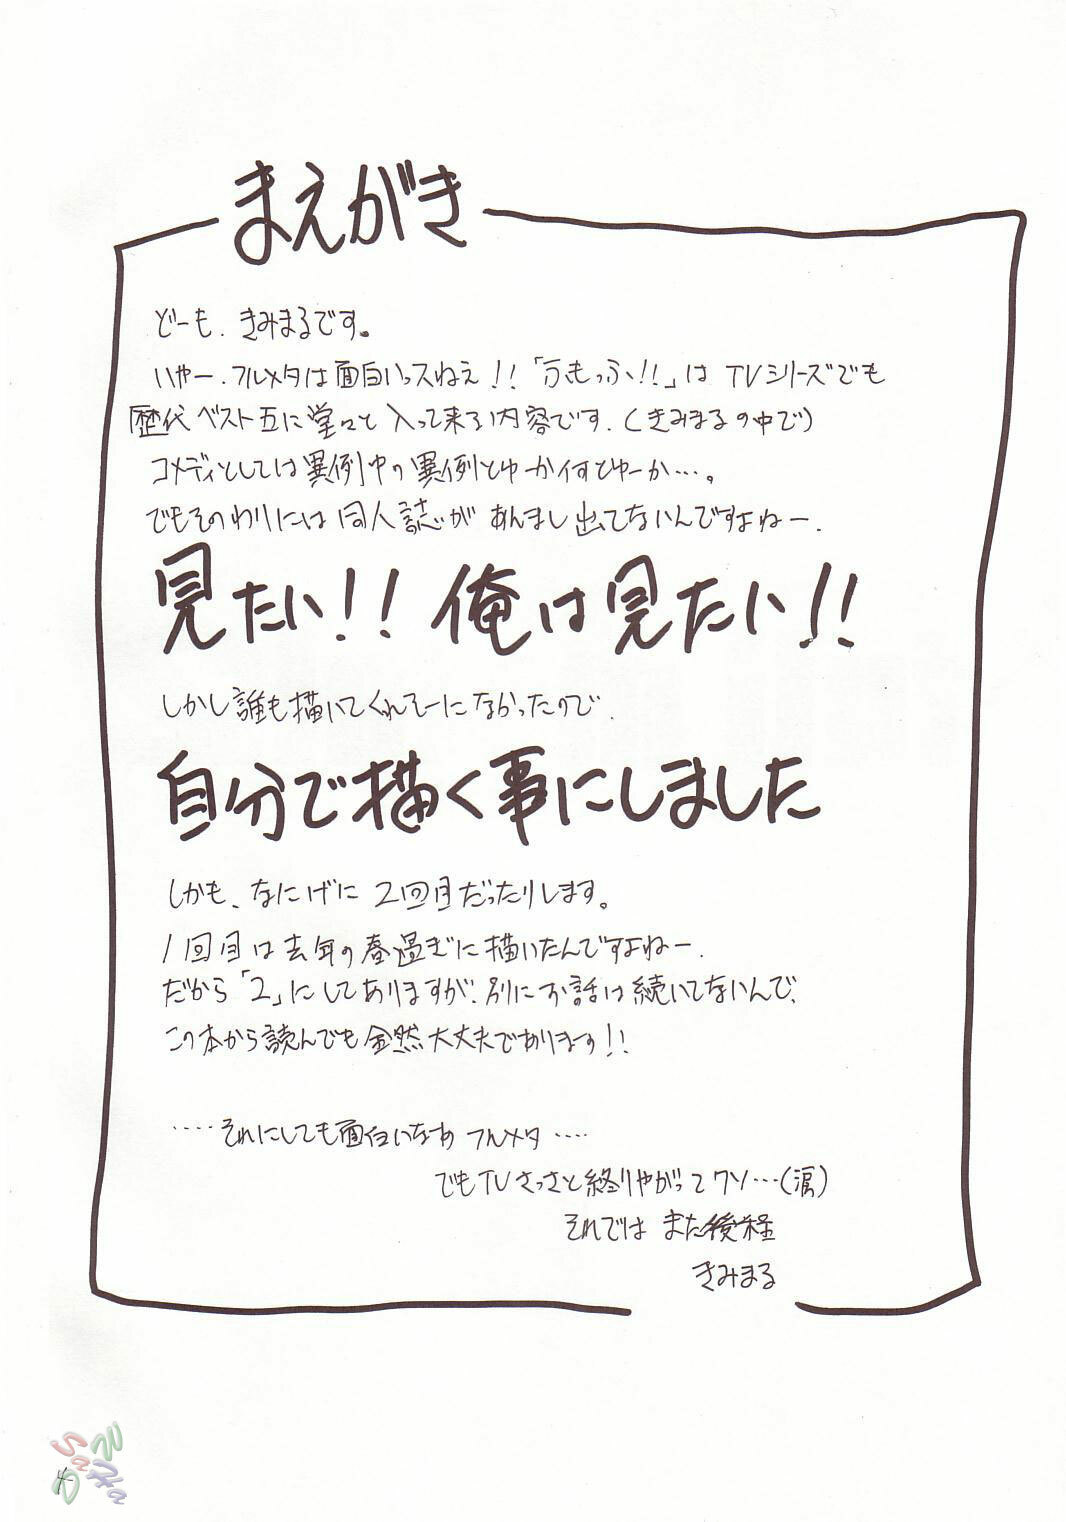 まえがき
どーも、きみまるです。
いやー、フルメタは面白いっスねえ!!「ふもっふ!!」は TVシリーズでも
歴代ベスト五に堂々と入って来る内容です、(きみまるの中で)
コメディとしては異例中の異例とゆーか
でもそのわりには同人誌があんまし出てないんですよねー、
見たい!!俺は見たい!!
しかし誰も描いてくれそーになかったので、
自分で描く事にしました
しかも、なにげに2回目だったりします。
1回目は去年の春過ぎに描いたんですよねー、
だから「2」にしてありますが、別にお話は続いてないんで、
この本から読んでも全然大丈夫であります!!
‥‥それにしても面白いなあ フルメタ‥‥
でもTVさっさと終りやがって クソ…(涙)
それでは また後程
きみまる
4